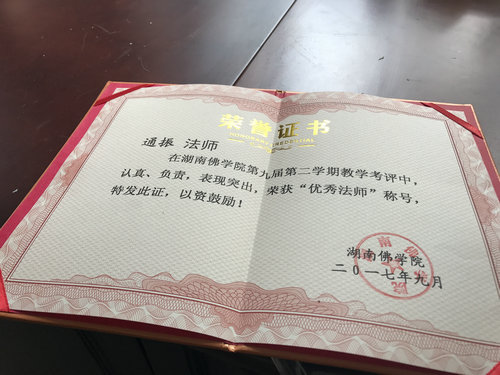 荣誉证书
HONORARY CREDENTIAL
通振 法师
在湖南佛学院第九届第二学期教学考评中,
认真、负责,表现突出,荣获“优秀法师”称号,
特发此证,以资鼓励!
湖南佛学院
二〇一七年九月